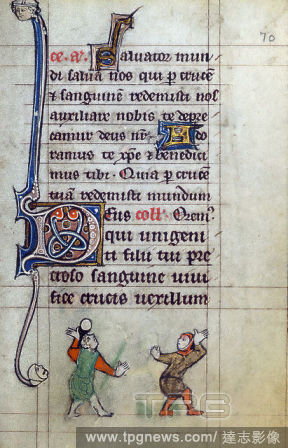 70
ce. ā. Salvator mun
di salva nos qui p crucē
& sanguinem redemisti nos
auxiliare nobis te depre
camur deus nr̄. Ado
ramus te xp̄e & benedici
mus tibi. Quia p crucem
tuā redemisti mundum
Deus coll. Oremꝰ
qui unigeni
ti filii tui pre
cioso sanguine vivi
fice crucis vexillum
TPG
www.tpgnews.com/達志影像